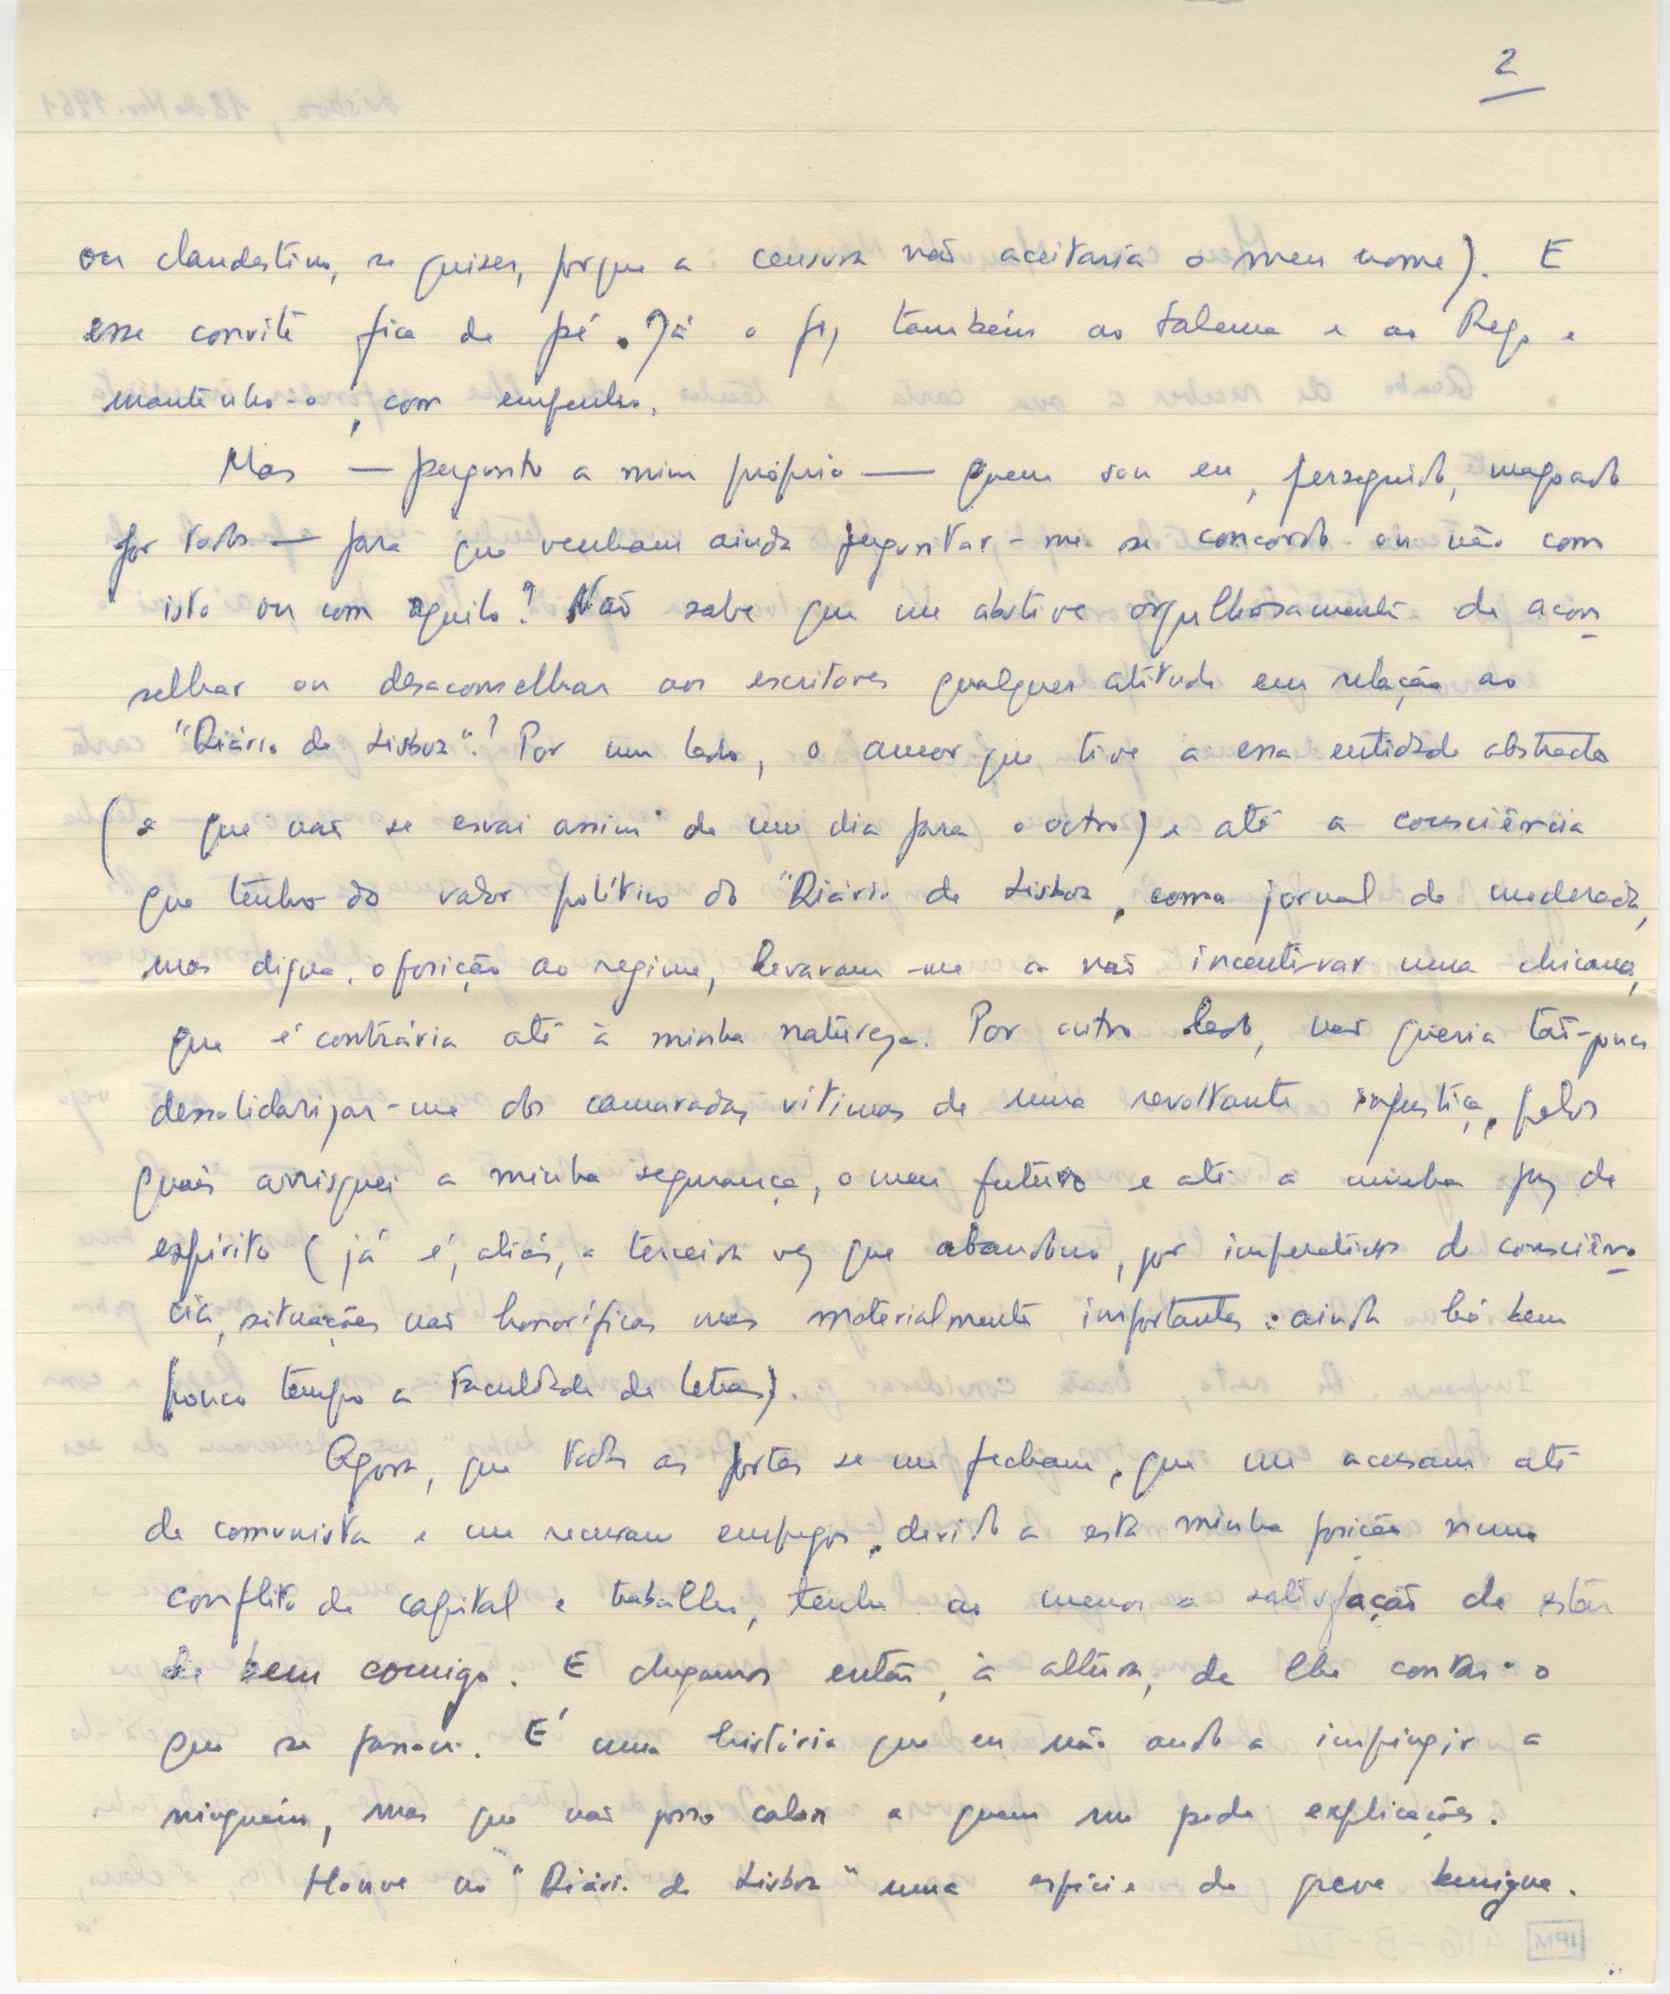 2
ou clandestino, se quiser, porque a censura não aceitaria o meu nome). E
esse convite fica de pé. Já o fiz também ao Salema e ao Rego e
mantenho-o, com empenho.
Mas — pergunto a mim próprio — quem sou eu, perseguido, magoado
por todos — para que venham ainda perguntar-me se concordo ou não com
isto ou com aquilo? Não sabe que me abstive orgulhosamente de acon
selhar ou desaconselhar aos escritores qualquer atitude em relação ao
"Diário de Lisboa"? Por um lado, o amor que tive a essa entidade abstracta
(e que não se esvai assim de um dia para o outro) e até a consciência
que tenho do valor político do "Diário de Lisboa, como jornal de moderada,
mas digna, oposição ao regime, levaram-me a não incentivar uma chicana,
que é contrária até à minha natureza. Por outro lado, não queria tão-pouco
dessolidarizar-me dos camaradas, vítimas de uma revoltante injustiça, pelos
quais arrisquei a minha segurança, o meu futuro e até a minha paz de
espírito (já é, aliás, a terceira vez que abandono, por imperativos de consciên
cia, situações não honoríficas mas materialmente importantes: ainda há bem
pouco tempo a Faculdade de Letras).
Agora, que todas as portas se me fecham, que me acusam até
de comunista e me recusam empregos, devido a esta minha posição numa
conflito de capital e trabalho, tenho ao menos a satisfação de estar
de bem comigo. E chegamos então, à altura, de lhe contar o
que se passou. É uma história que eu não ando a impingir a
ninguém, mas que não posso calar a quem me pede explicações.
Houve no "Diário de Lisboa" uma espécie de greve benigna.